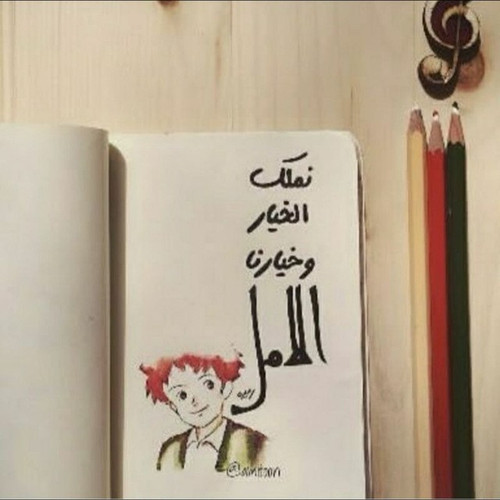 نملك
الخيار
وخيارنا
الامل